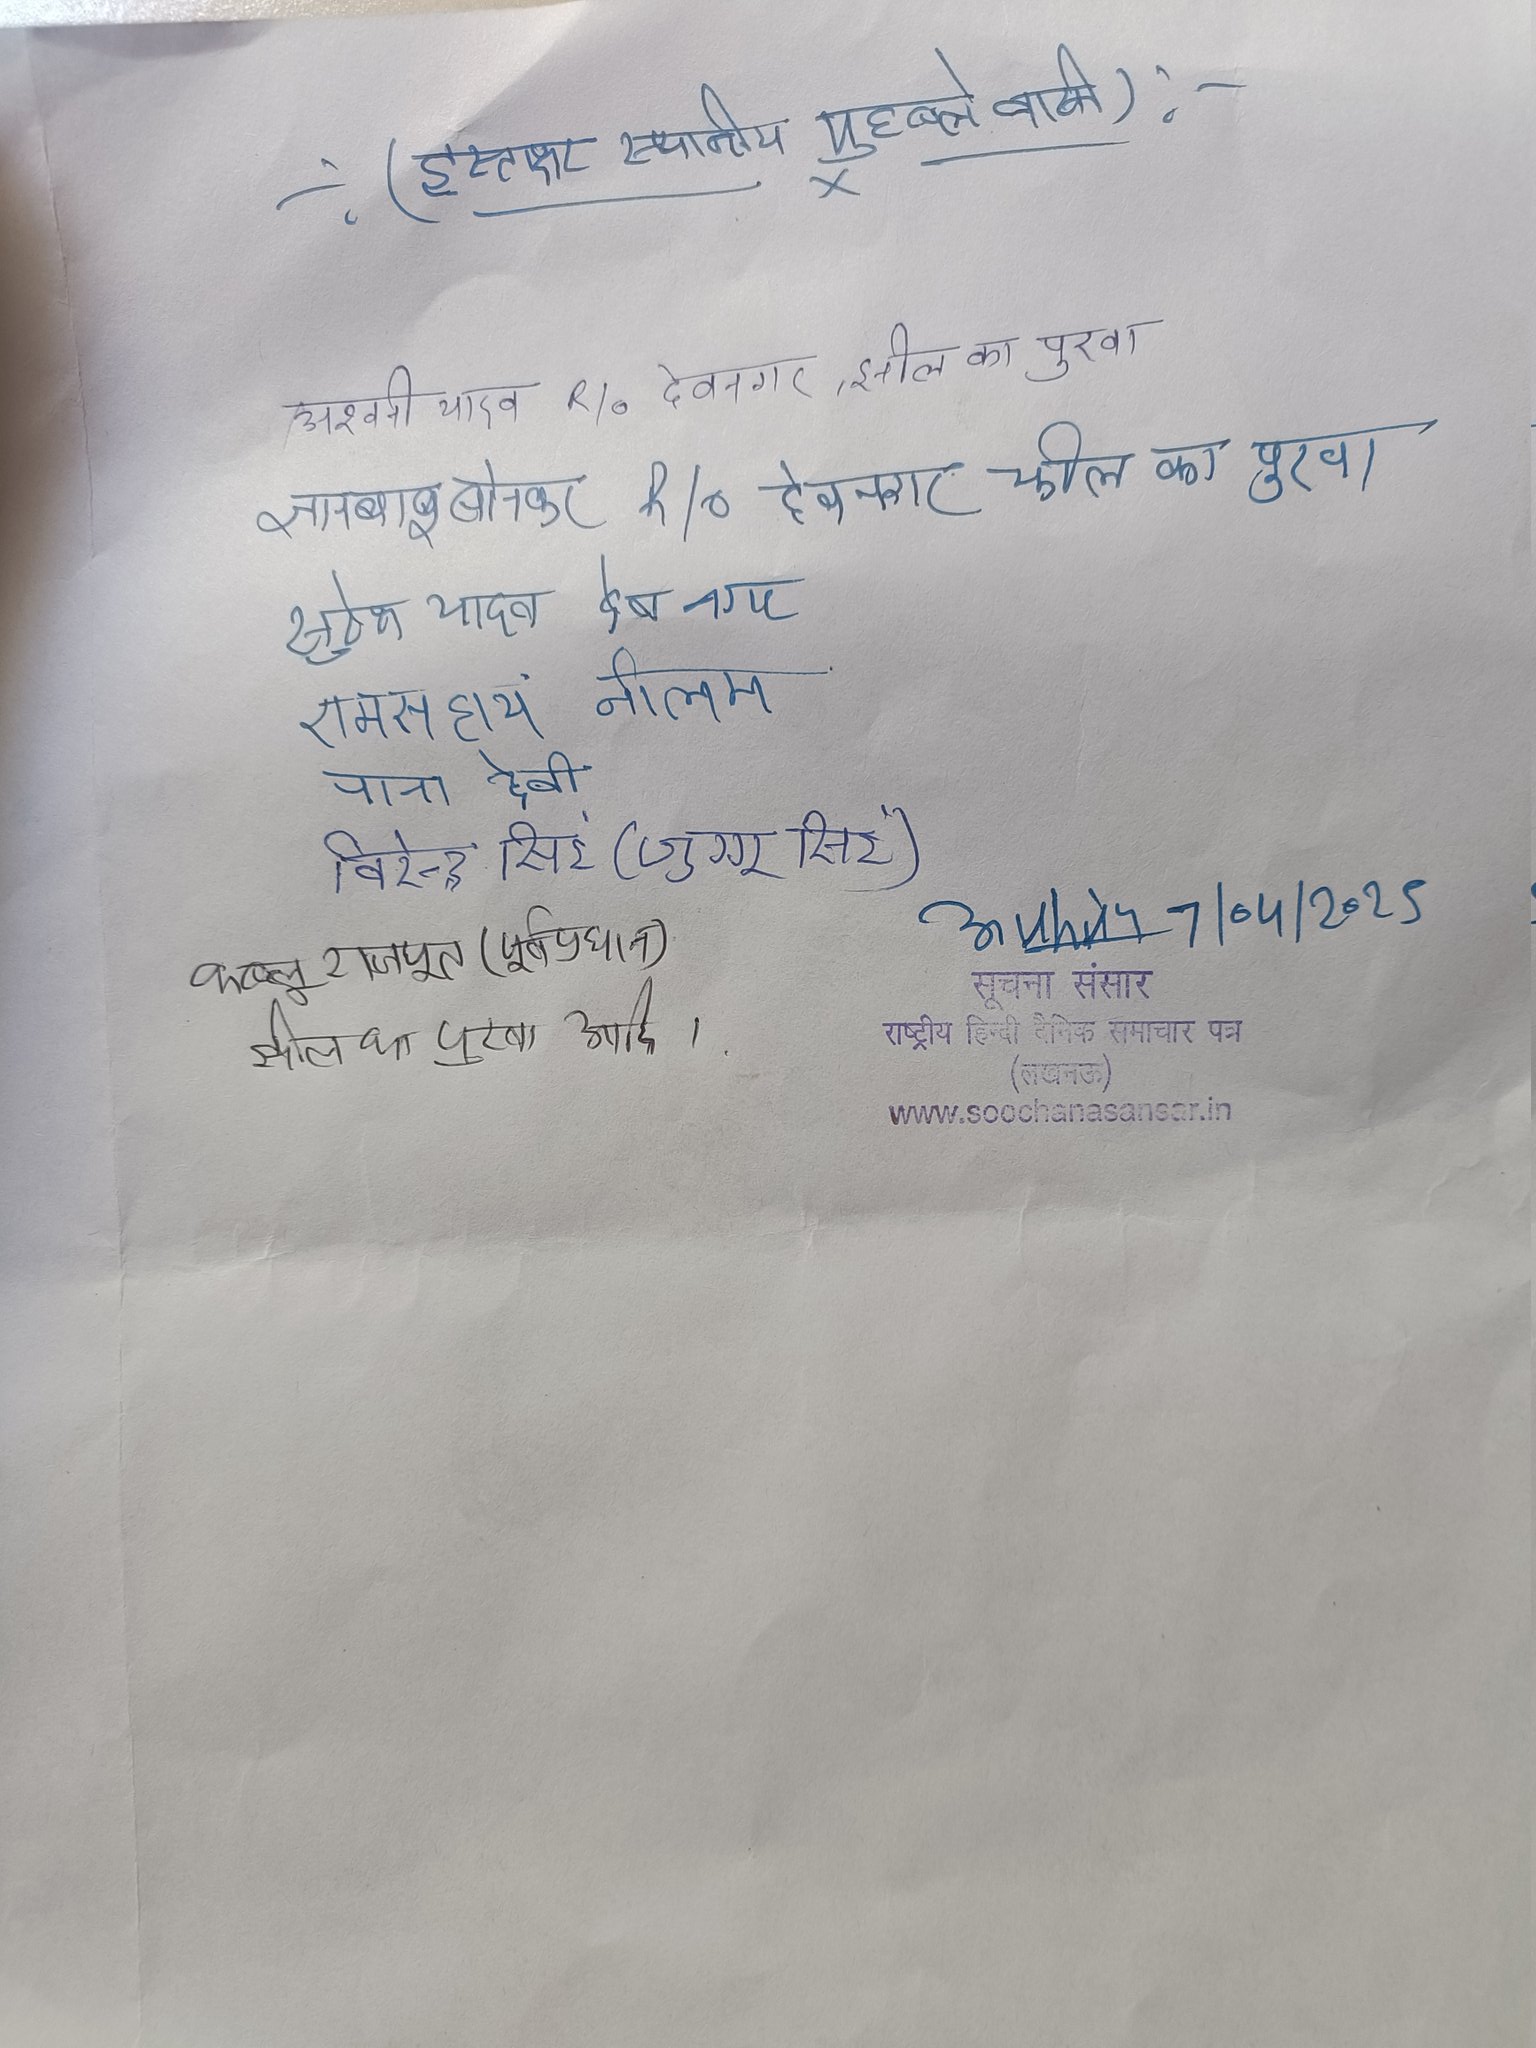 -: (हस्ताक्षर स्थानीय मुहल्ले वासी) :-
अश्वनी यादव R/o देवनगर, झील का पुरवा
ज्ञानबाबू सोनकर R/o देवनगर झील का पुरवा
यादव देव नगर
रामसहाय नीलम
देवी
विरेन्द्र सिंह ( सिंह)
कल्लू राजपूत (पूर्व प्रधान)
झील का पुरवा आदि।
7/04/2025
सूचना संसार
राष्ट्रीय हिन्दी दैनिक समाचार पत्र
(लखनऊ)
www.soochanasansar.in